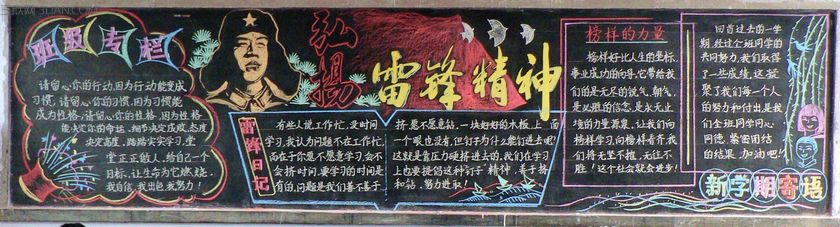 班级专栏
请留心你的行动,因为行动能变成
习惯,请留心你的习惯,因为习惯能
成为性格;请留心你的性格,因为性格
能决定你的命运。细节决定成败,态度
决定高度,踏踏实实学习,堂
堂正正做人,给自己一个
目标,让生命为它燃烧。
我自信,我出色,我努力!
弘扬
雷锋精神
雷锋日记
有些人说工作忙,没时间
学习,我认为问题不在工作忙,
而在于你愿不愿意学习,会不
会挤时间。要学习的时间是
有的,问题是我们善不善于
挤,愿不愿意钻。一块好好的木板,上面
一个眼也没有,但钉子为什么能钉进去呢?
这就是靠压力硬挤进去的,我们在学习
上也要提倡这种钉子"精神,善于挤
和钻,努力进取!
榜样的力量
榜样好比人生的坐标,
事业成功的向导,它带给我
们的是无尽的锐气、朝气,
是必胜的信念,是永无止
境的力量源泉,让我们向
榜样学习,向榜样看齐,我
们将无坚不摧,无往不
胜!这个社会就会进步!
回首过去的一学
期,经过个班同学的
共同努力,我们取得
了一些成绩,这凝
聚了我们每一个人
的努力和付出,是我
们全班同学同心
同德,紧密团结
的结果,加油吧!!
新学期寄语